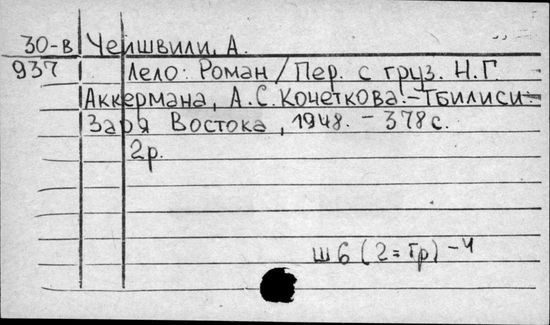 30-в Чеишвили, А.
937 Лело: Роман / Пер. с груз. Н.Г.
Аккермана, А.С. Кочеткова. – Тбилиси:
Заря Востока, 1948. – 378 с.
2р.
Ш6 (2=Гр) – Ч